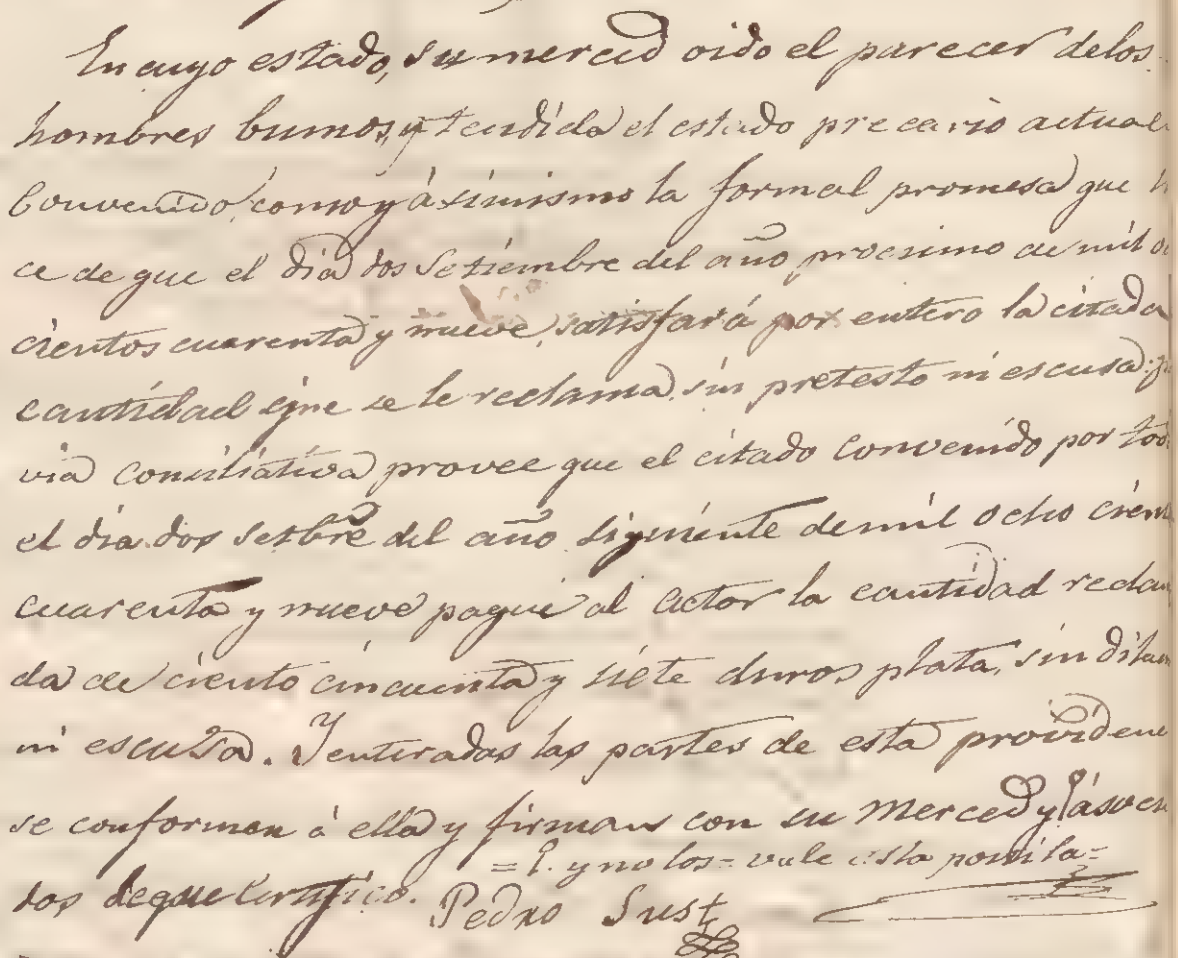 En cuyo estado, su merced oido el parecer delos
hombres buenos, y tendida el estado precario actual
Convenido, como y àsimismo la formal promesa que h
ce de que el dia dos Setiembre del año procsimo de mil o
cientos cuarenta y nueve, satisfará por entero la citada
cantidad que se le reclama, sin pretesto ni escusa: p
via Conciliativa provee que el citado Convenido por tod
el dia dos Setbre del año siguiente de mil ocho cien
cuarenta y nueve pague al actor la cantidad reclam
da de ciento cincuenta y siete duros plata, sin dila
ni escusa. Y enteradas las partes de esta providenc
se conforman à ella y firman con su Merced y
= y no los = vale esta postila =
dos deque Certifico. Pedro Sust